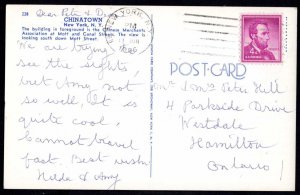 238
Dear Pete & D
CHINATOWN
New York, N. Y.
The building in foreground is the Chinese Merchants
Association at Mott and Canal Streets. The view is
looking south down Mott Street.
We are trying to
see the sights,
but Amy not
so well, It is
quite cool,
cannot travel
fast. Best wishes
Hilda & Amy
NEW YORK, N.
PM
POST-CARD
Mrs Peter Hill
4 Parkside Drive
Westdale
Hamilton
Ontario